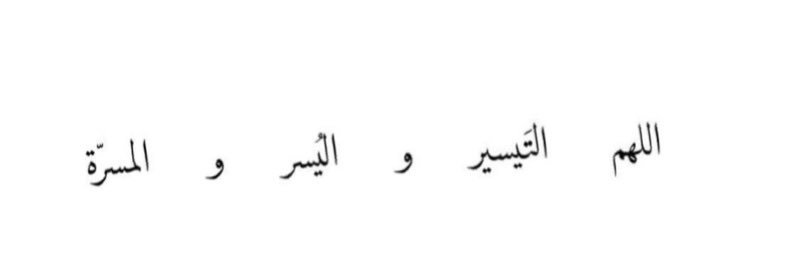 اللهم التَيسير و اليُسر و المسرّة